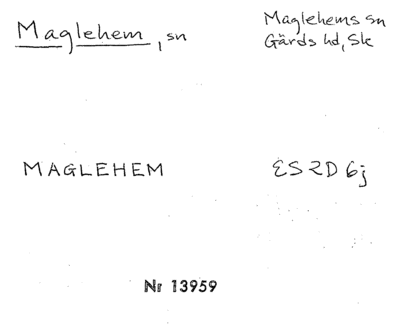 Maglehem, sn
Maglehems sn
Gärds hd, Sk
MAGLEHEM
ES 2D 6j
Nr 13959